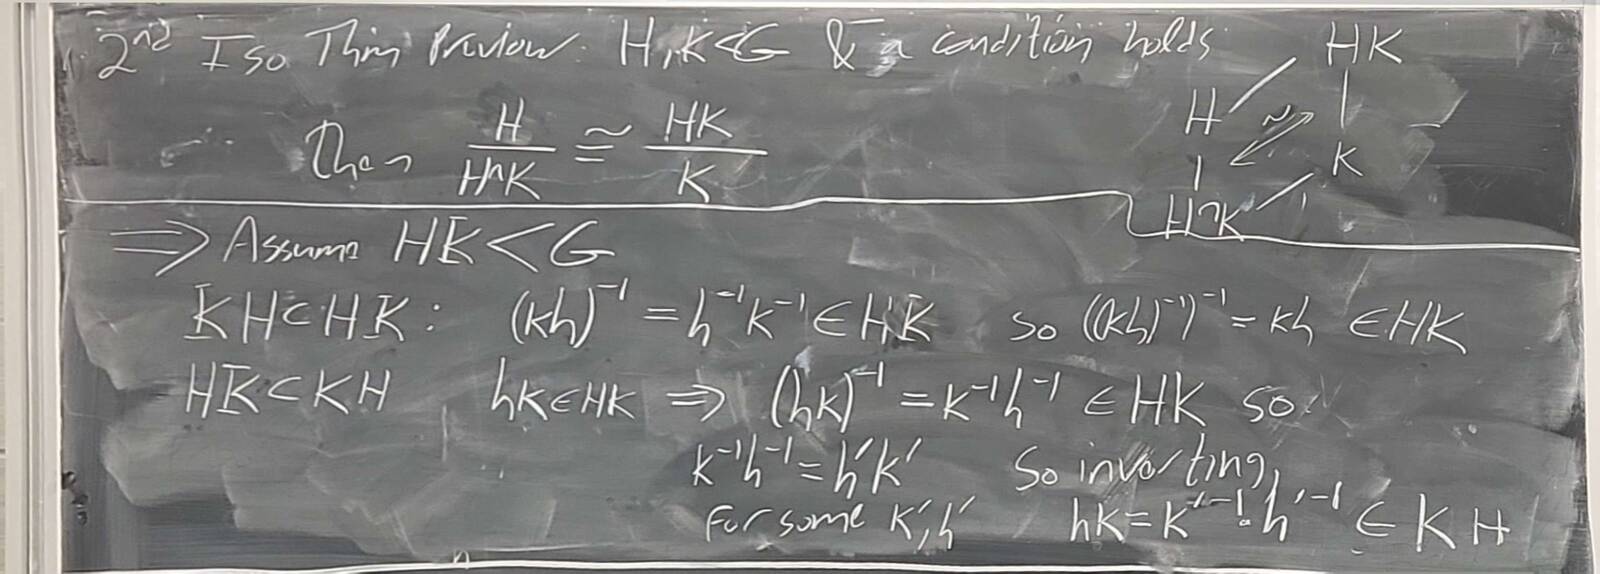 2nd Iso Thm Preview: H, K < G & a condition holds.
Then H/H∩K ≅ HK/K
HK
H ~ K
H∩K
⟹ Assume HK < G
KH ⊂ HK : (kh)⁻¹ = h⁻¹k⁻¹ ∈ HK so ((kh)⁻¹)⁻¹ = kh ∈ HK
HK ⊂ KH hk ∈ HK ⟹ (hk)⁻¹ = k⁻¹h⁻¹ ∈ HK so
k⁻¹h⁻¹ = h′k′ So inverting,
for some k′, h′ hk = k′⁻¹ · h′⁻¹ ∈ KH